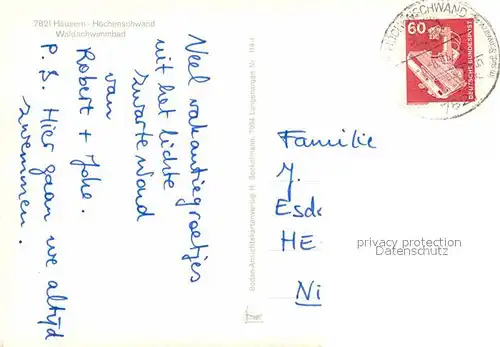 7821 Häusern - Höchenschwand
Waldschwimmbad
Veel vakantiegroetjes
mit het lichte
zwarte Wond
van
Robert + Joke.
P.S. Hier gaan we altijd
zwemmen.
Boden-Ansichtskartenverlag H. Bockelmann, 7994 Langenargen Nr.
HÖCHENSCHWAND
60
DEUTSCHE BUNDESPOST
Familie
J.
Esd
HE
Ni
privacy protection
Datenschutz